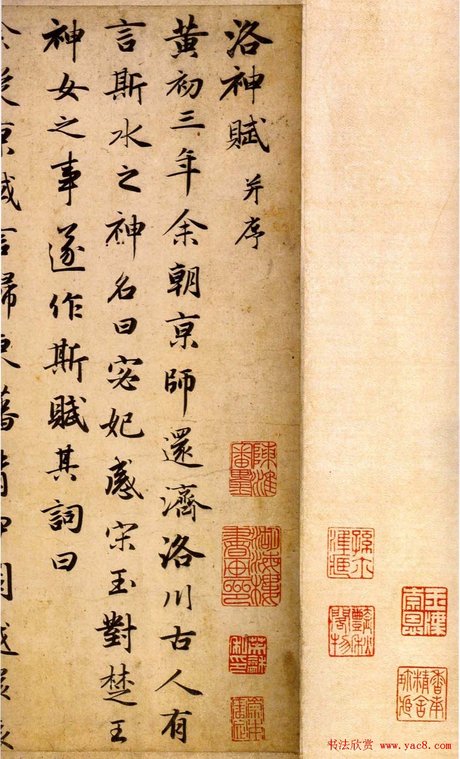 洛神賦 并序
黃初三年余朝京師還濟洛川古人有
言斯水之神名曰宓妃感宋玉對楚王
神女之事遂作斯賦其詞曰
京域言歸東藩背
书法欣赏 www.yac8.com